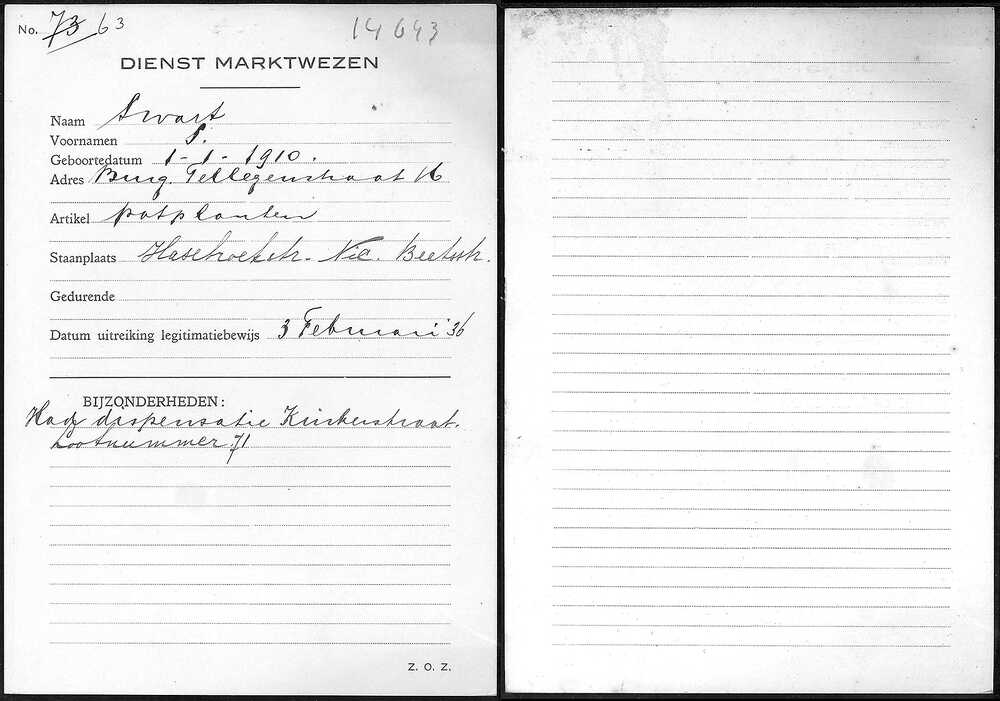 No. 73 63
14643
DIENST MARKTWEZEN
Naam Swart
Voornamen S.
Geboortedatum 1-1-1910.
Adres Burg. Tellegenstraat 16
Artikel potplanten
Staanplaats Hasebroekstr. Nic. Beetsstr.
Gedurende
Datum uitreiking legitimatiebewijs 3 Februari '36
BIJZONDERHEDEN:
dispensatie Kinkerstraat.
Lootnummer 71
Z. O. Z.